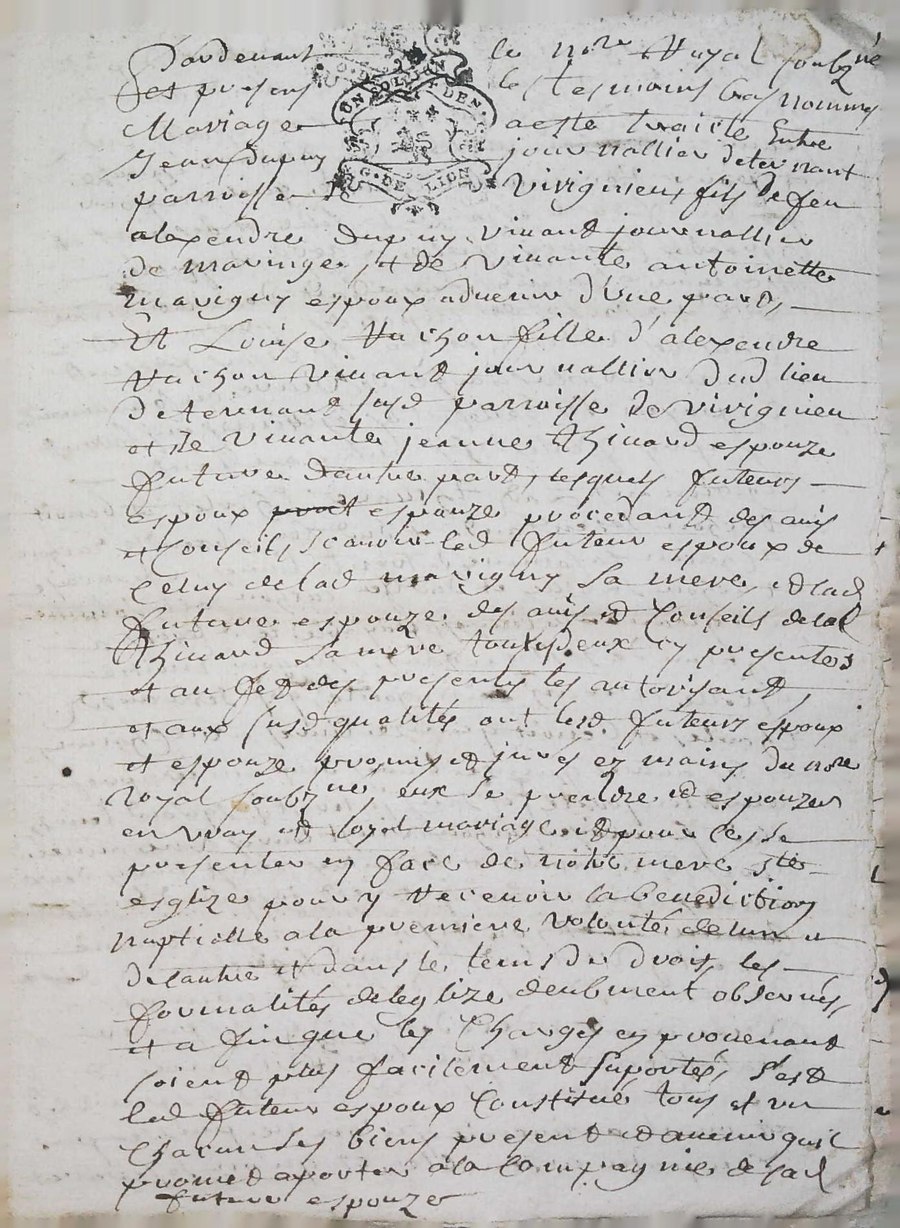 Pardevant le no.re Royal soubz.né
et presens les tesmoins bas nommés
Mariage a esté traicté Entre
Jean Dupuy journallier de ternant
parroisse de Virignieu, fils de feu
alexendre Dupuy, vivant journallier
de maringe, et de vivante antoinette
mavigny espoux advenir d'une part,
Et Louise Vachon fille d'alexendre
Vachon vivant journallier dud lieu
de ternant susd parroisse de Virignieu
et de vivante jeanne Thinard espouze
future d'autre part, lesquels futeurs
espoux et espouze procedant des avis
et Conseils, scavoir led futeur espoux de
Celuy de lad mavigny sa mere, et lad
future espouze des avis et Conseils de lad
Thinard sa mere toutes deux cy presentes
et au fet des presentes les autorisant,
et aux susd qualités ont lesd futeurs espoux
et espouze promis et jurés ez mains du no.re
Royal soubz.né, eux se prendre et espouzer
en vray et loyal mariage, et pour ce se
presenter en face de notre mere s.te
esglize pour y recevoir la benediction
nuptialle a la premiere volonté de l'un u
de l'autre et dans le tems du droit, les
formalités de leglize deubment observés,
et a fin que les Charges en provenant
soient plus facilement suportés, s'est
led futeur espoux Constitué tous et un
chacun ses biens present et avenir qu'il
promet aporter a la Compagnie de lad
future espouze
UN SOL
DEN
G. DE LION